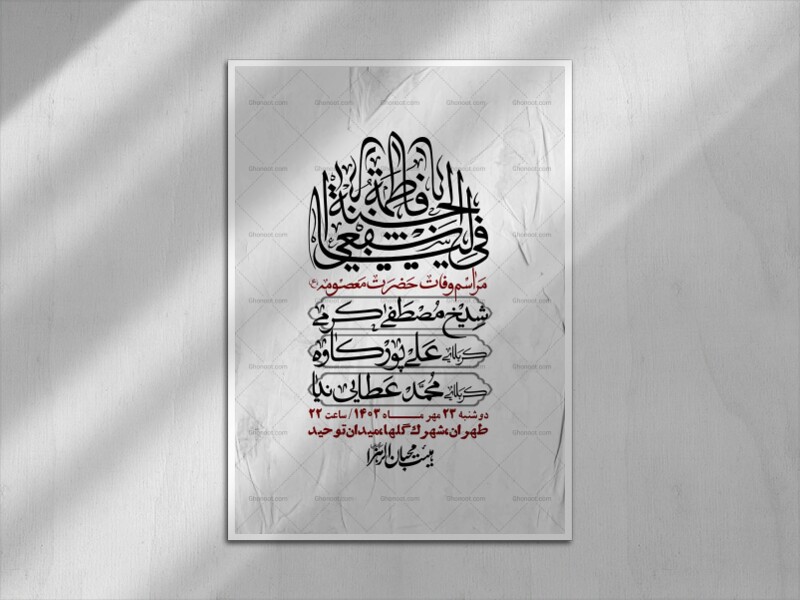 یا فاطمة اشفعی لی فی الجنة
مراسم وفات حضرت معصومه (س)
شیخ مصطفی کرمی
کربلایی علی پورکاوه
کربلایی محمد عطایی نیا
دوشنبه ۲۳ مهر مــاه ۱۴۰۳ / ساعت ۲۲
طهران، شهرک گلها، میدان توحید
هیئت محبان الزهرا
Ghonoot.com